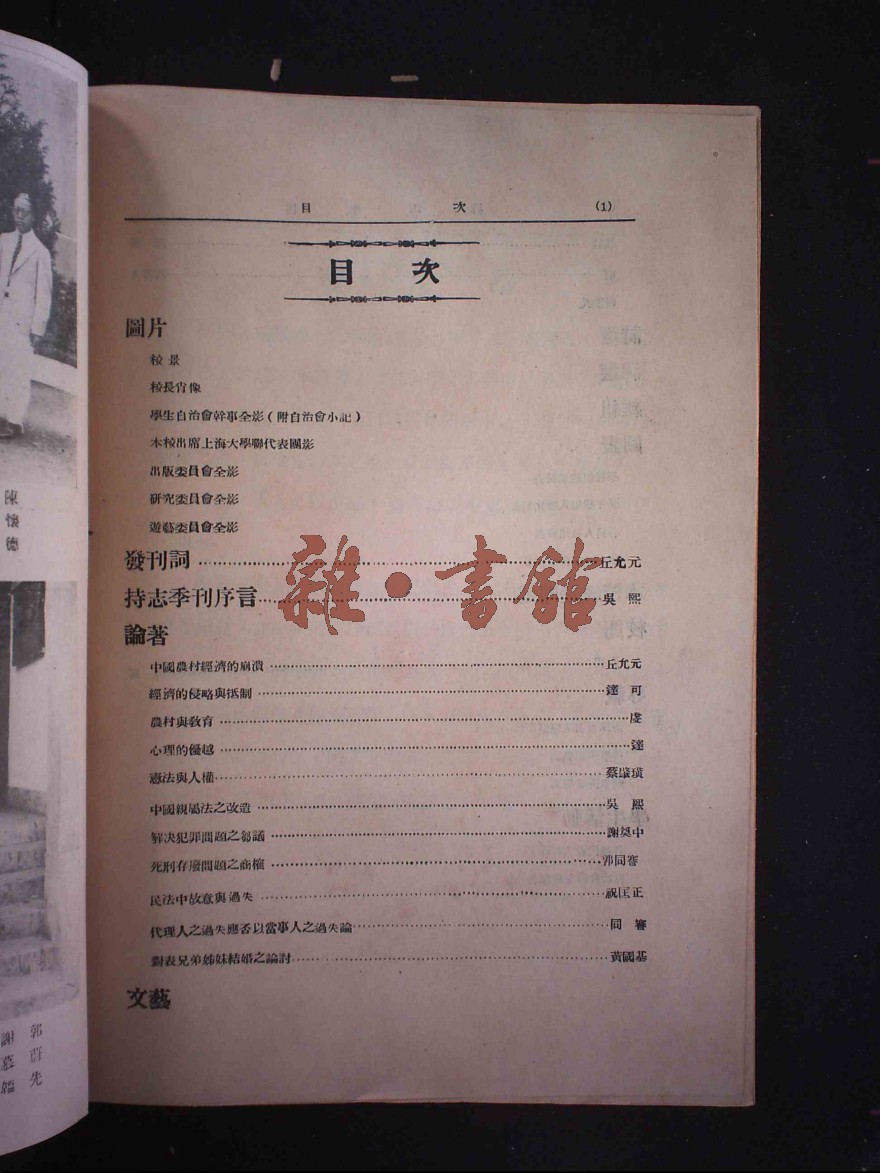 目 次 (1)
目 次
圖片
校景
校長肖像
學生自治會幹事全影(附自治會小記)
本校出席上海大學聯代表團影
出版委員會全影
研究委員會全影
遊藝委員會全影
發刊詞……丘允元
持志季刊序言……吳 熙
論著
中國農村經濟的崩潰……丘允元
經濟的侵略與抵制……達 可
農村與教育……虔
心理的優越……達
憲法與人權……蔡肇璜
中國親屬法之改造……吳 熙
解决犯罪問題之芻議……謝奠中
死刑存廢問題之商榷……邓同審
民法中故意與過失……祝匡正
代理人之過失應否以當事人之過失論……同 審
對表兄弟姊妹結婚之論討……黃國基
文藝
陳懷德
郭蔚先
謝慕韞
雜·書館